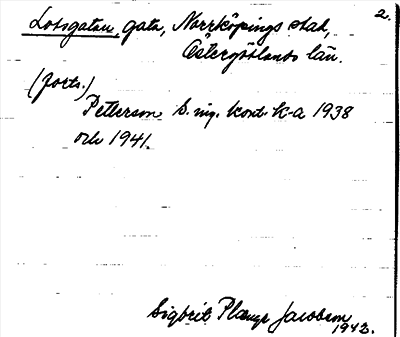 2.
Lotsgatan, gata, Norrköpings stad,
Östergötlands län.
(forts.)
Petterson S. ing. kont. K-a 1938
och 1941.
Sigbrit Plænge Jacobson
1942.